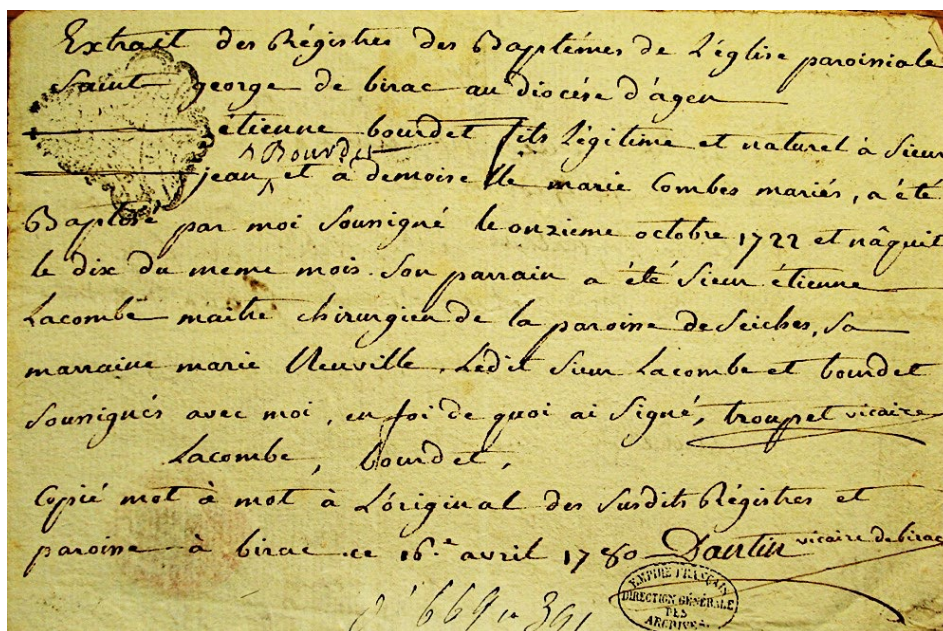 Extrait des Régistres des Baptêmes de L'église paroissiale
Saint george de birac au diocése d'agen
étienne bourdet fils légitime et naturel à Sieur
^ Bourdet
jean ^ et à demoiselle marie Combes mariés, a été
Baptisé par moi Soussigné le onzieme octobre 1722 et nâquit
le dix du meme mois. Son parrain a été Sieur étienne
Lacombe maitre chirurgien de la paroisse de Seiches, Sa
marraine marie Neuville. Ledit Sieur Lacombe et bourdet
Soussignés avec moi, en foi de quoi ai Signé, troupet vicaire
Lacombe, bourdet,
Copié mot à mot à L'original des Susdits Régistres et
paroisse à birac ce 16.e avril 1780 Dantin vicaire de birac
EMPIRE FRANÇAIS
DIRECTION GÉNÉRALE
DES
ARCHIVES